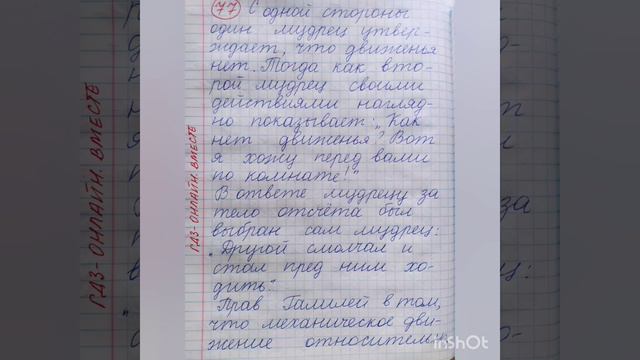 77 С одной стороны
один мудрец утвер-
ждает, что движенья
нет. Тогда как вто-
рой мудрец своими
действиями нагляд-
но показывает: „Как
нет движенья? Вот
я хожу перед вами
по комнате!"
В ответе мудрецу за
тело отсчёта был
выбран сам мудрец:
„Другой смолчал и
стал пред ним хо-
дить."
Прав Галилей в том,
что механическое дви-
жение относительн
ГДЗ-ОНЛАЙН. ВМЕСТЕ
InShOt